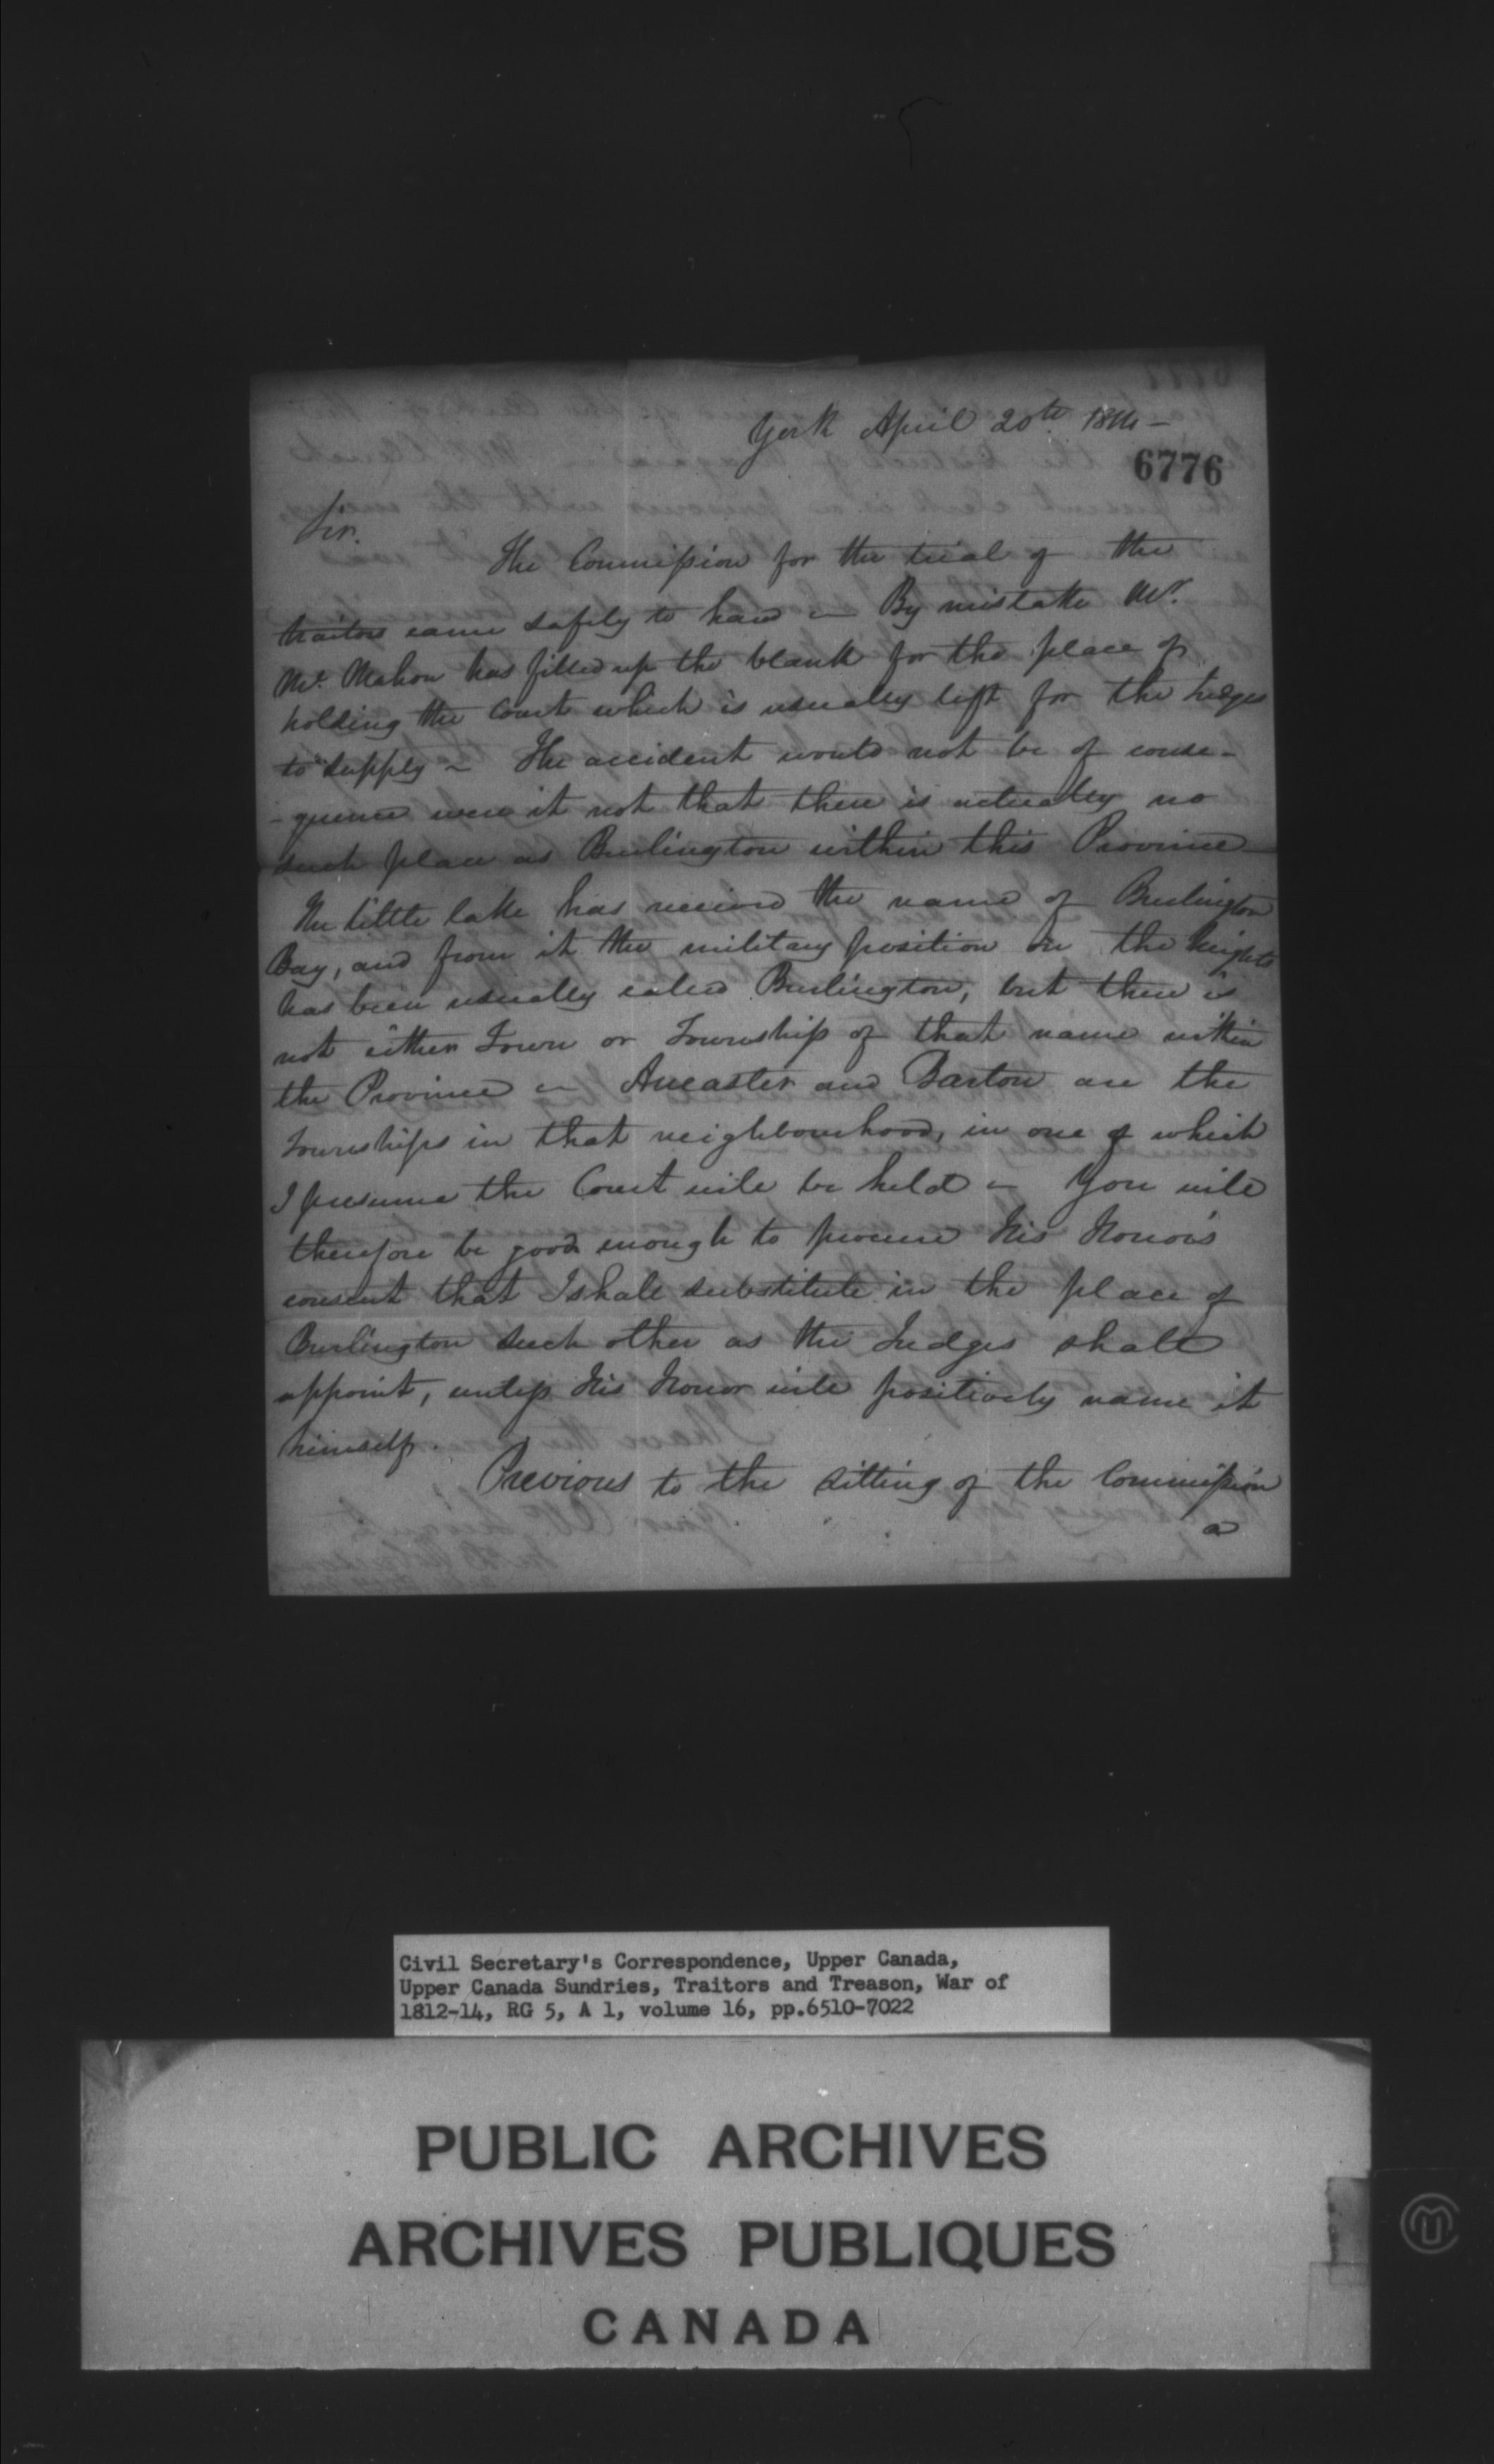 York April 20th 1814 –
6776
Sir.
The Commission for the trial of the
traitors came safely to hand – By mistake Mr.
Mc. Mahon has filled up the blank for the place of
holding the Court which is usually left for the Judges
to supply – The accident would not be of conse-
-quence were it not that there is actually no
such place as Burlington within this Province
The little lake has received the name of Burlington
Bay, and from it the military position on the heights
has been usually called Burlington, but there is
not either Town or Township of that name within
the Province – Ancaster and Barton are the
Townships in that neighbourhood, in one of which
I presume the Court will be held – You will
therefore be good enough to procure His Honor's
consent that I shall substitute in the place of
Burlington such other as the Judges shall
appoint, unless His Honor will positively name it
himself.
Previous to the sitting of the Commission
a
Civil Secretary's Correspondence, Upper Canada,
Upper Canada Sundries, Traitors and Treason, War of
1812-14, RG 5, A 1, volume 16, pp.6510-7022
PUBLIC ARCHIVES
ARCHIVES PUBLIQUES
CANADA